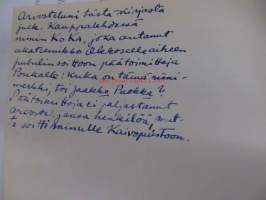 Arvosteluni tästä kirjasta
julk. Kauppalehdessä
nimim KoKa, joka antanut
akateemikko Okkoselle aiheen
puhelinsoittoon päätoimittaja
Ponkalle: kuka on tämä nimi-
merkki, tri Jaakko Puokka?
Päätoimittaja ei paljastanut
arvostelijansa henkilöä, mut-
ta soitti minulle Kaivopuistoon.